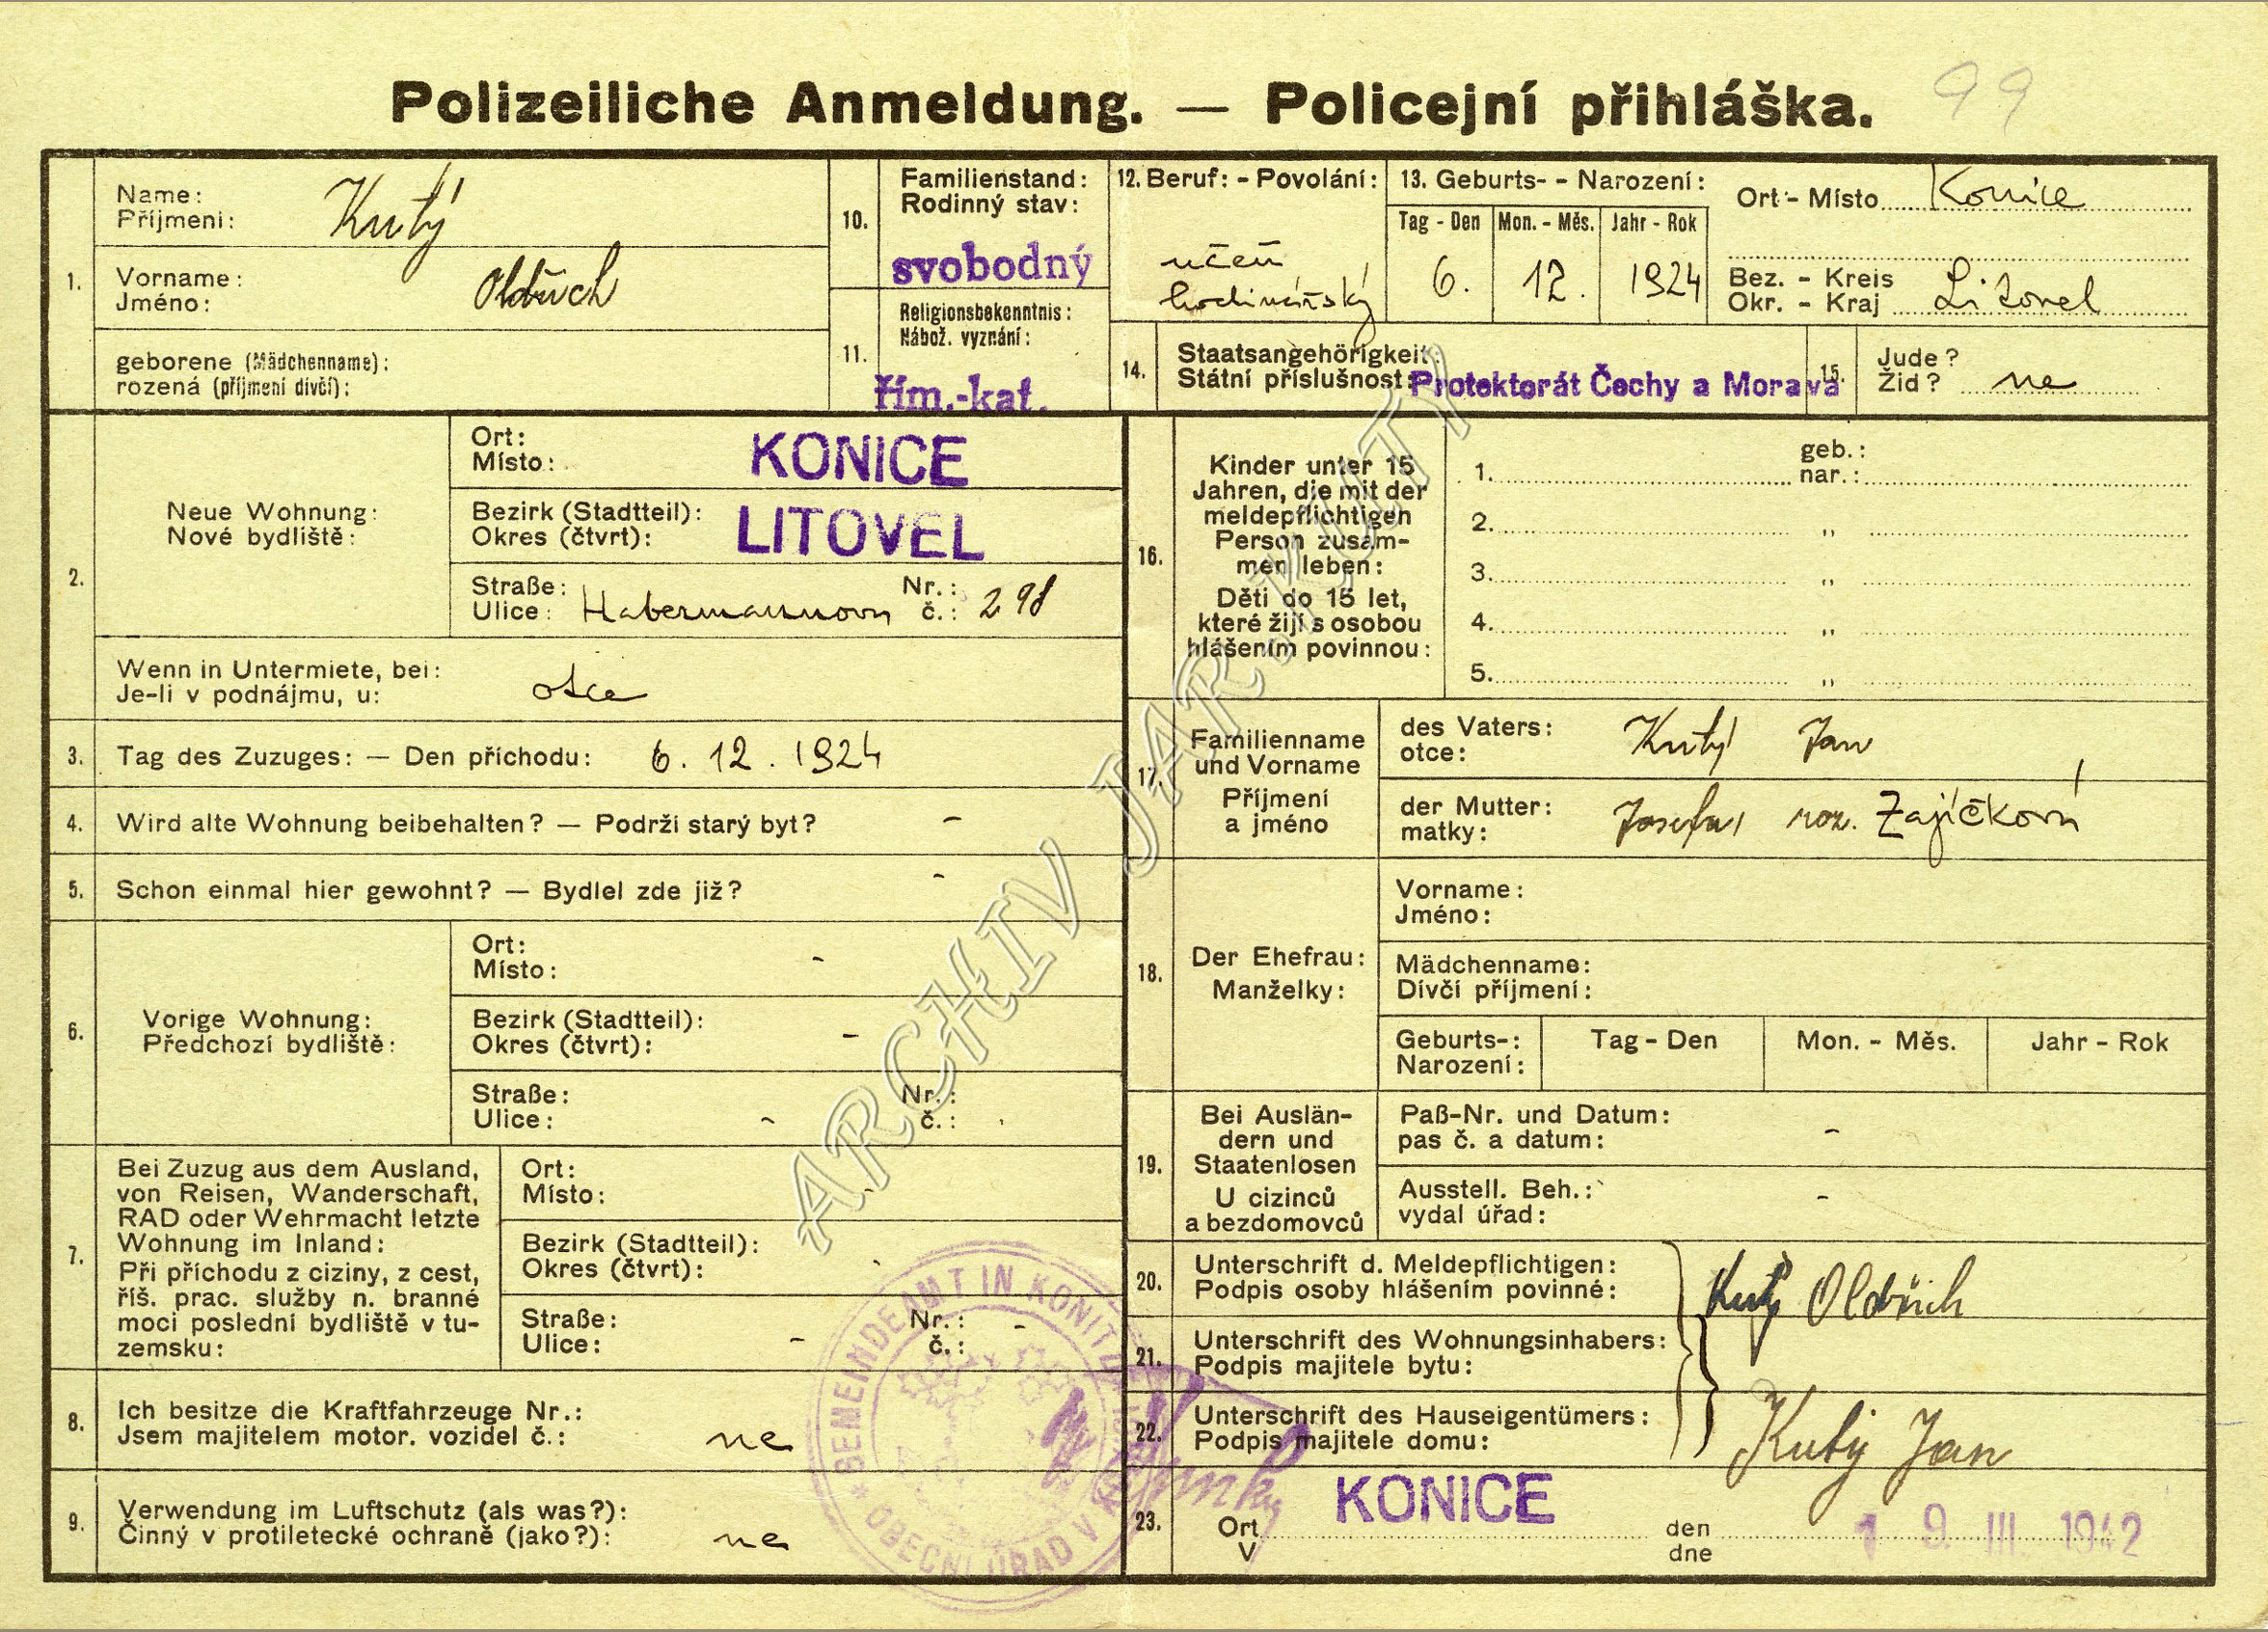 Polizeiliche Anmeldung. — Policejní přihláška.
99
1.
Name:
Příjmení:
Kutý
Vorname:
Jméno:
Oldřich
geborene (Mädchenname):
rozená (příjmení dívčí):
10.
Familienstand:
Rodinný stav:
svobodný
11.
Religionsbekenntnis:
Nábož. vyznání:
řím.-kat.
12. Beruf: - Povolání:
učeň
hodinářský
13. Geburts- - Narození:
Tag - Den
Mon. - Měs.
Jahr - Rok
6.
12.
1924
Ort - Místo Konice
Bez. - Kreis
Okr. - Kraj Litovel
14.
Staatsangehörigkeit:
Státní příslušnost:
Protektorát Čechy a Morava
15.
Jude?
Žid? ne
2.
Neue Wohnung:
Nové bydliště:
Ort:
Místo:
KONICE
Bezirk (Stadtteil):
Okres (čtvrt):
LITOVEL
Straße:
Ulice: Habermannova
Nr.:
č.: 298
Wenn in Untermiete, bei:
Je-li v podnájmu, u:
otce
3. Tag des Zuzuges: — Den příchodu: 6. 12. 1924
4. Wird alte Wohnung beibehalten? — Podrží starý byt? -
5. Schon einmal hier gewohnt? — Bydlel zde již? -
6.
Vorige Wohnung:
Předchozí bydliště:
Ort:
Místo: -
Bezirk (Stadtteil):
Okres (čtvrt): -
Straße:
Ulice: -
Nr.:
č.:
7.
Bei Zuzug aus dem Ausland,
von Reisen, Wanderschaft,
RAD oder Wehrmacht letzte
Wohnung im Inland:
Při příchodu z ciziny, z cest,
říš. prac. služby n. branné
moci poslední bydliště v tu-
zemsku:
Ort:
Místo: -
Bezirk (Stadtteil):
Okres (čtvrt):
Straße:
Ulice: -
Nr.: -
č.:
8.
Ich besitze die Kraftfahrzeuge Nr.:
Jsem majitelem motor. vozidel č.:
ne
9.
Verwendung im Luftschutz (als was?):
Činný v protiletecké ochraně (jako?):
ne
GEMEINDEAMT IN KONITZ
OBECNÍ ÚŘAD V
16.
Kinder unter 15
Jahren, die mit der
meldepflichtigen
Person zusam-
men leben:
Děti do 15 let,
které žijí s osobou
hlášením povinnou:
1. geb.:
nar.:
2. „
3. „
4. „
5. „
17.
Familienname
und Vorname
Příjmení
a jméno
des Vaters:
otce:
Kutý Jan
der Mutter:
matky:
Josefa, roz. Zajíčková
18.
Der Ehefrau:
Manželky:
Vorname:
Jméno:
Mädchenname:
Dívčí příjmení:
Geburts-:
Narození:
Tag - Den
Mon. - Měs.
Jahr - Rok
19.
Bei Auslän-
dern und
Staatenlosen
U cizinců
a bezdomovců
Paß-Nr. und Datum:
pas č. a datum: -
Ausstell. Beh.:
vydal úřad: -
20.
Unterschrift d. Meldepflichtigen:
Podpis osoby hlášením povinné:
Kutý Oldřich
21.
Unterschrift des Wohnungsinhabers:
Podpis majitele bytu:
22.
Unterschrift des Hauseigentümers:
Podpis majitele domu:
Kutý Jan
23.
Ort
V
KONICE
den
dne
19. III. 1942
ARCHIV JAR.KUTÝ